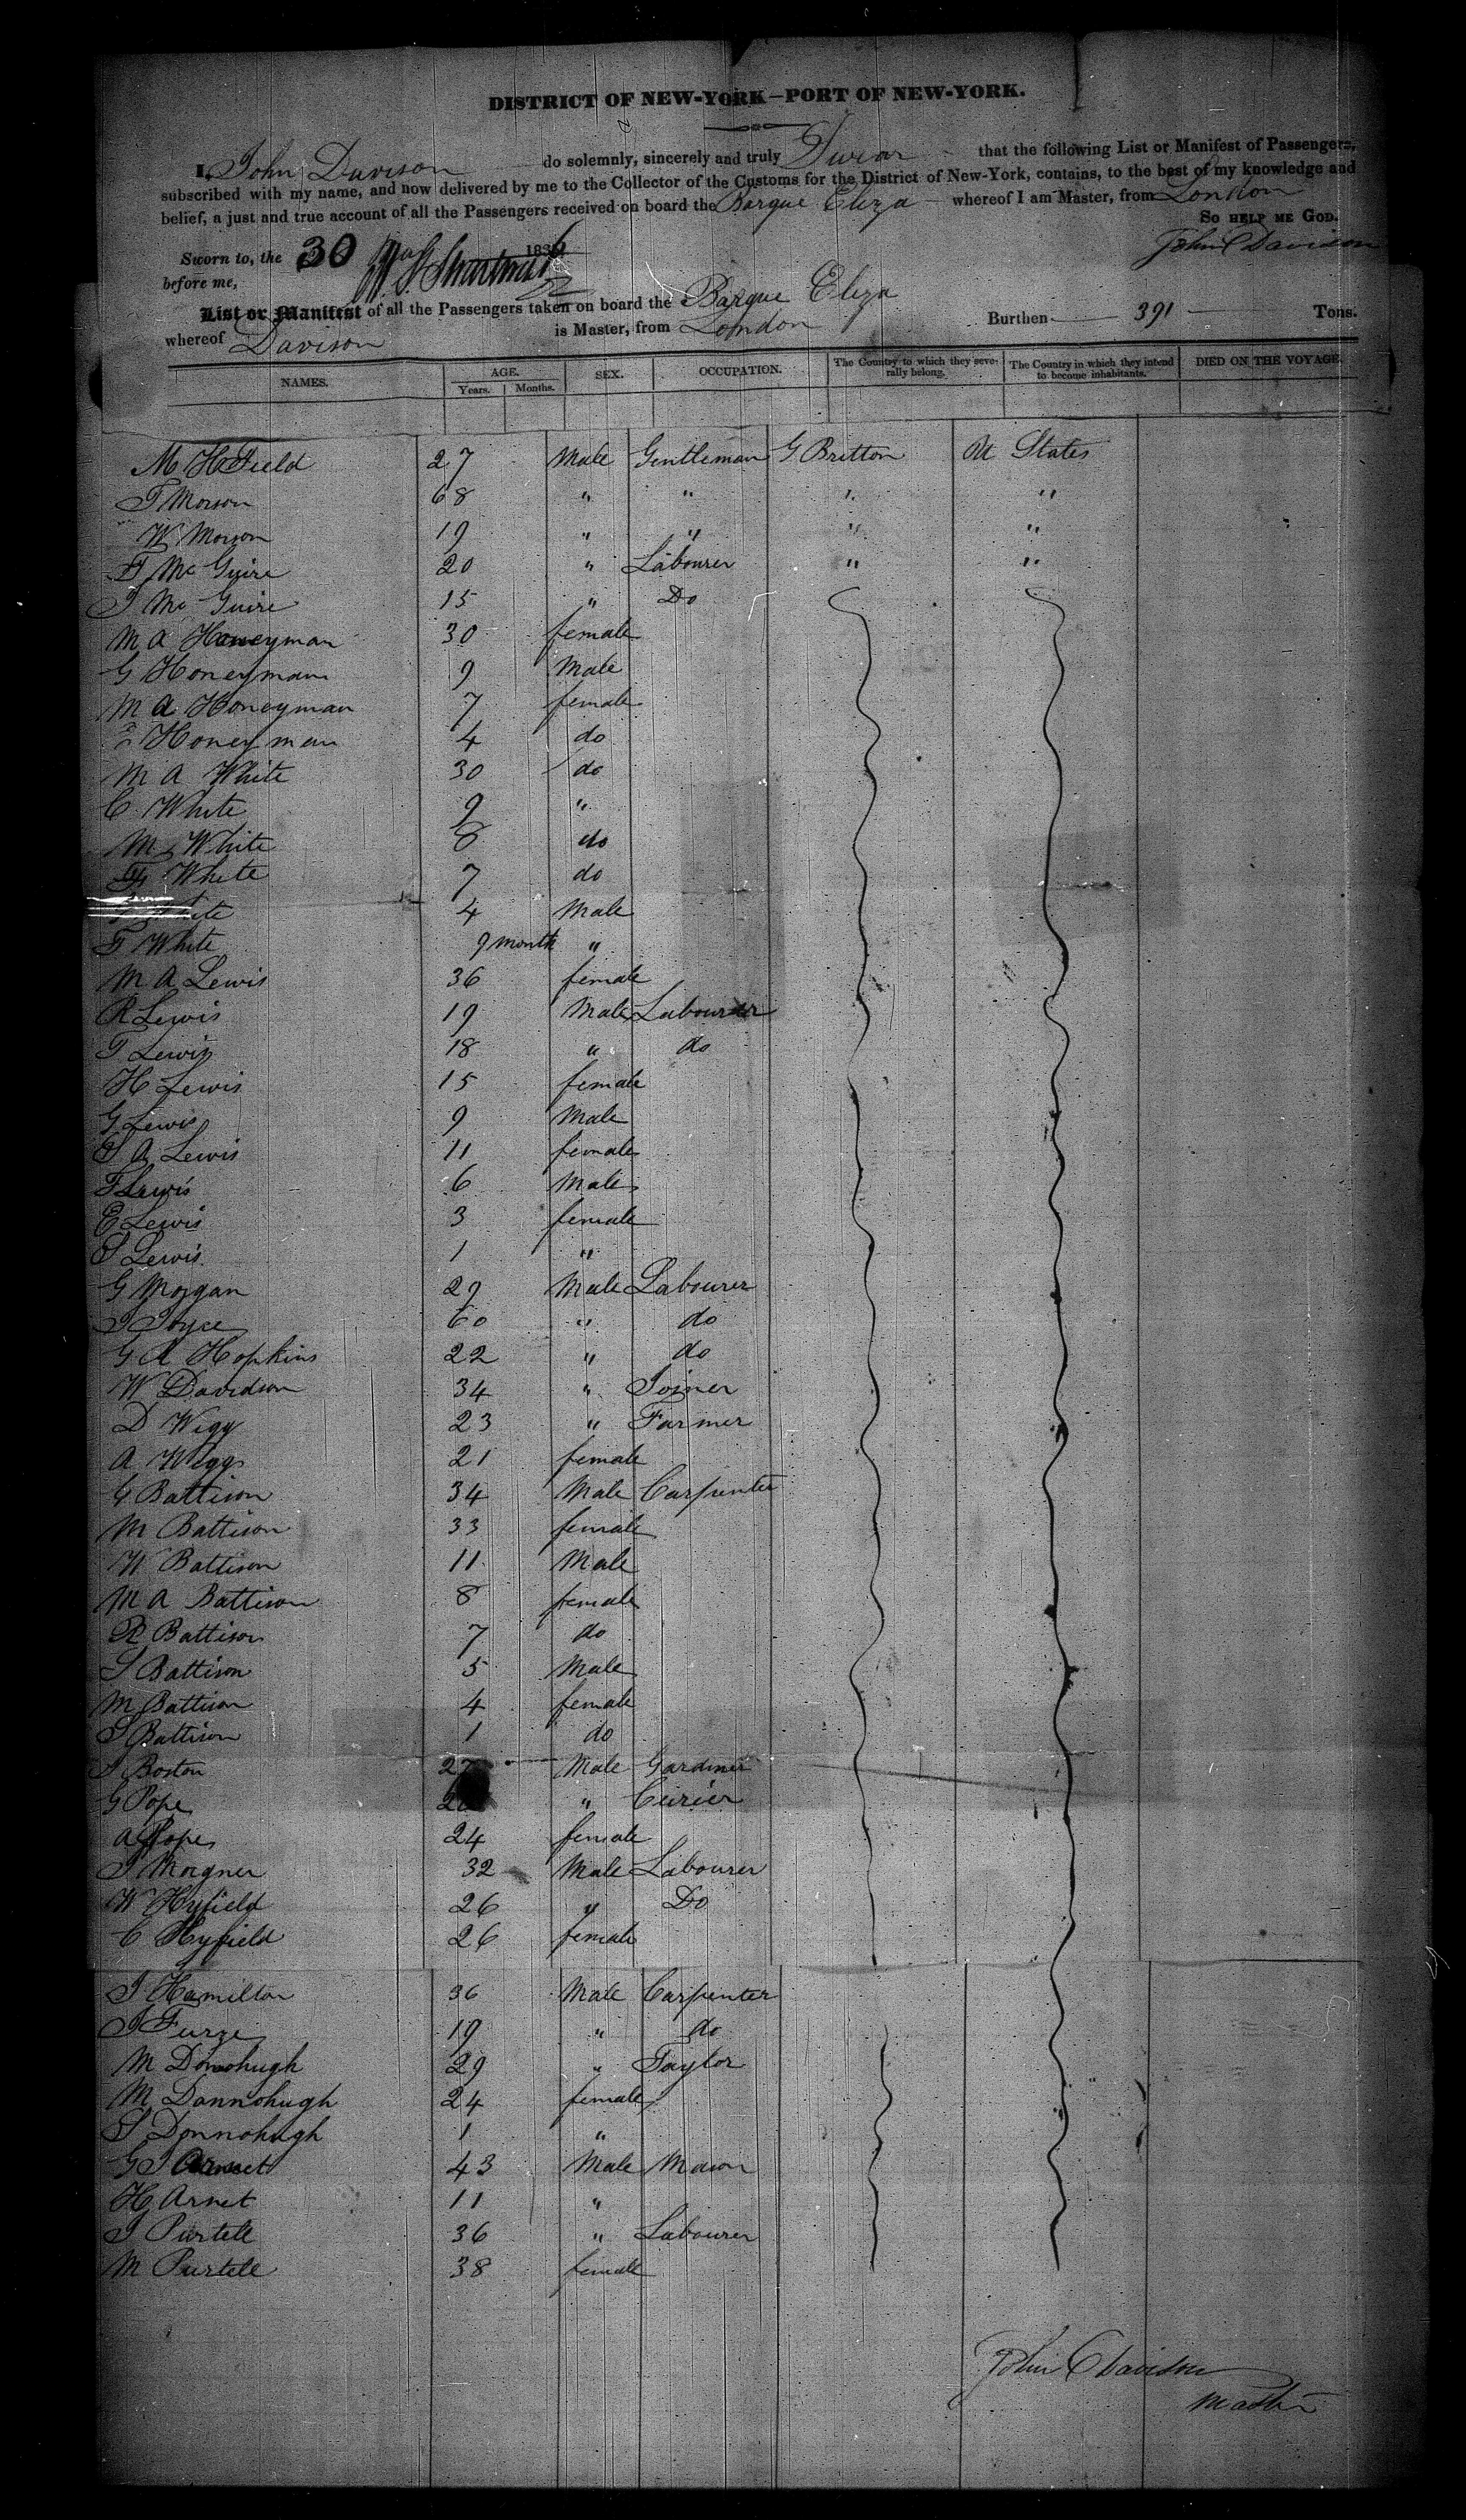 DISTRICT OF NEW-YORK—PORT OF NEW-YORK.
I, John Davison do solemnly, sincerely and truly Swear that the following List or Manifest of Passengers,
subscribed with my name, and now delivered by me to the Collector of the Customs for the District of New-York, contains, to the best of my knowledge and
belief, a just and true account of all the Passengers received on board the Barque Eliza whereof I am Master, from London
So HELP ME GOD.
Sworn to, the 30 183
John C Davison
before me,
List or Manifest of all the Passengers taken on board the Barque Eliza
whereof Davison is Master, from London Burthen 391 Tons.
NAMES. AGE. Years. Months. SEX. OCCUPATION. The Country to which they severally belong. The Country in which they intend to become inhabitants. DIED ON THE VOYAGE.
M H Field 27 Male Gentleman G Britton U States
T Morson 68 " " " "
W Morson 19 " " " "
F Mc Guire 20 " Labourer " "
J Mc Guire 15 " Do
M A Honeyman 30 female
G Honeyman 9 Male
M A Honeyman 7 female
Honeyman 4 do
M A White 30 do
C White 9 "
M White 8 do
White 7 do
White 4 Male
F White 9 month "
M A Lewis 36 female
R Lewis 19 Male Labourer
T Lewis 18 " do
H Lewis 15 female
G Lewis 9 Male
S A Lewis 11 female
F Lewis 6 Male
E Lewis 3 female
S Lewis 1 "
G Morgan 29 Male Labourer
J Joyce 60 " do
G A Hopkins 22 " do
W Davidson 34 " Joiner
D Wigg 23 " Farmer
A Wiggs 21 female
G Battison 34 Male Carpenter
M Battison 33 female
W Battison 11 Male
M A Battison 8 female
R Battison 7 do
S Battison 5 Male
M Battison 4 female
S Battison 1 do
J Boston 27 Male Gardiner
G Pope " Curier
A Pope 24 female
J Mogner 32 Male Labourer
W Hyfield 26 " Do
C Hyfield 26 female
J Hamilton 36 Male Carpenter
J Furze 19 " do
M Donohugh 29 " Taylor
M Donnohugh 24 female
S Donnohugh 1 "
G J Arnet 43 Male Mason
H Arnet 11 "
J Purtele 36 " Labourer
M Purtele 38 female
John C Davison
Master